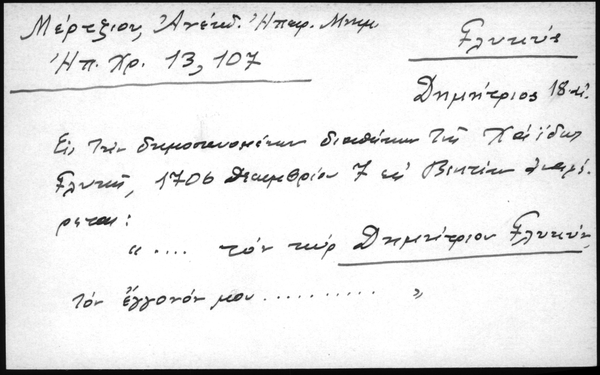 Μέρτζιου, Ἀνέκδ. Ἠπειρ. Μνημ.
Ἠπ. Χρ. 13, 107
Γλυκύς
Δημήτριος 18 αἰ.
Εἰς τὴν δημοσιευομένην διαθήκην τῆς Χάϊδως
Γλυκῆ, 1706 Δεκεμβρίου 7 ἐν Βενετίᾳ ἀναφέ-
ρεται:
" .... τὸν κὺρ Δημήτριον Γλυκύν
τὸν ἔγγονόν μου .......... "